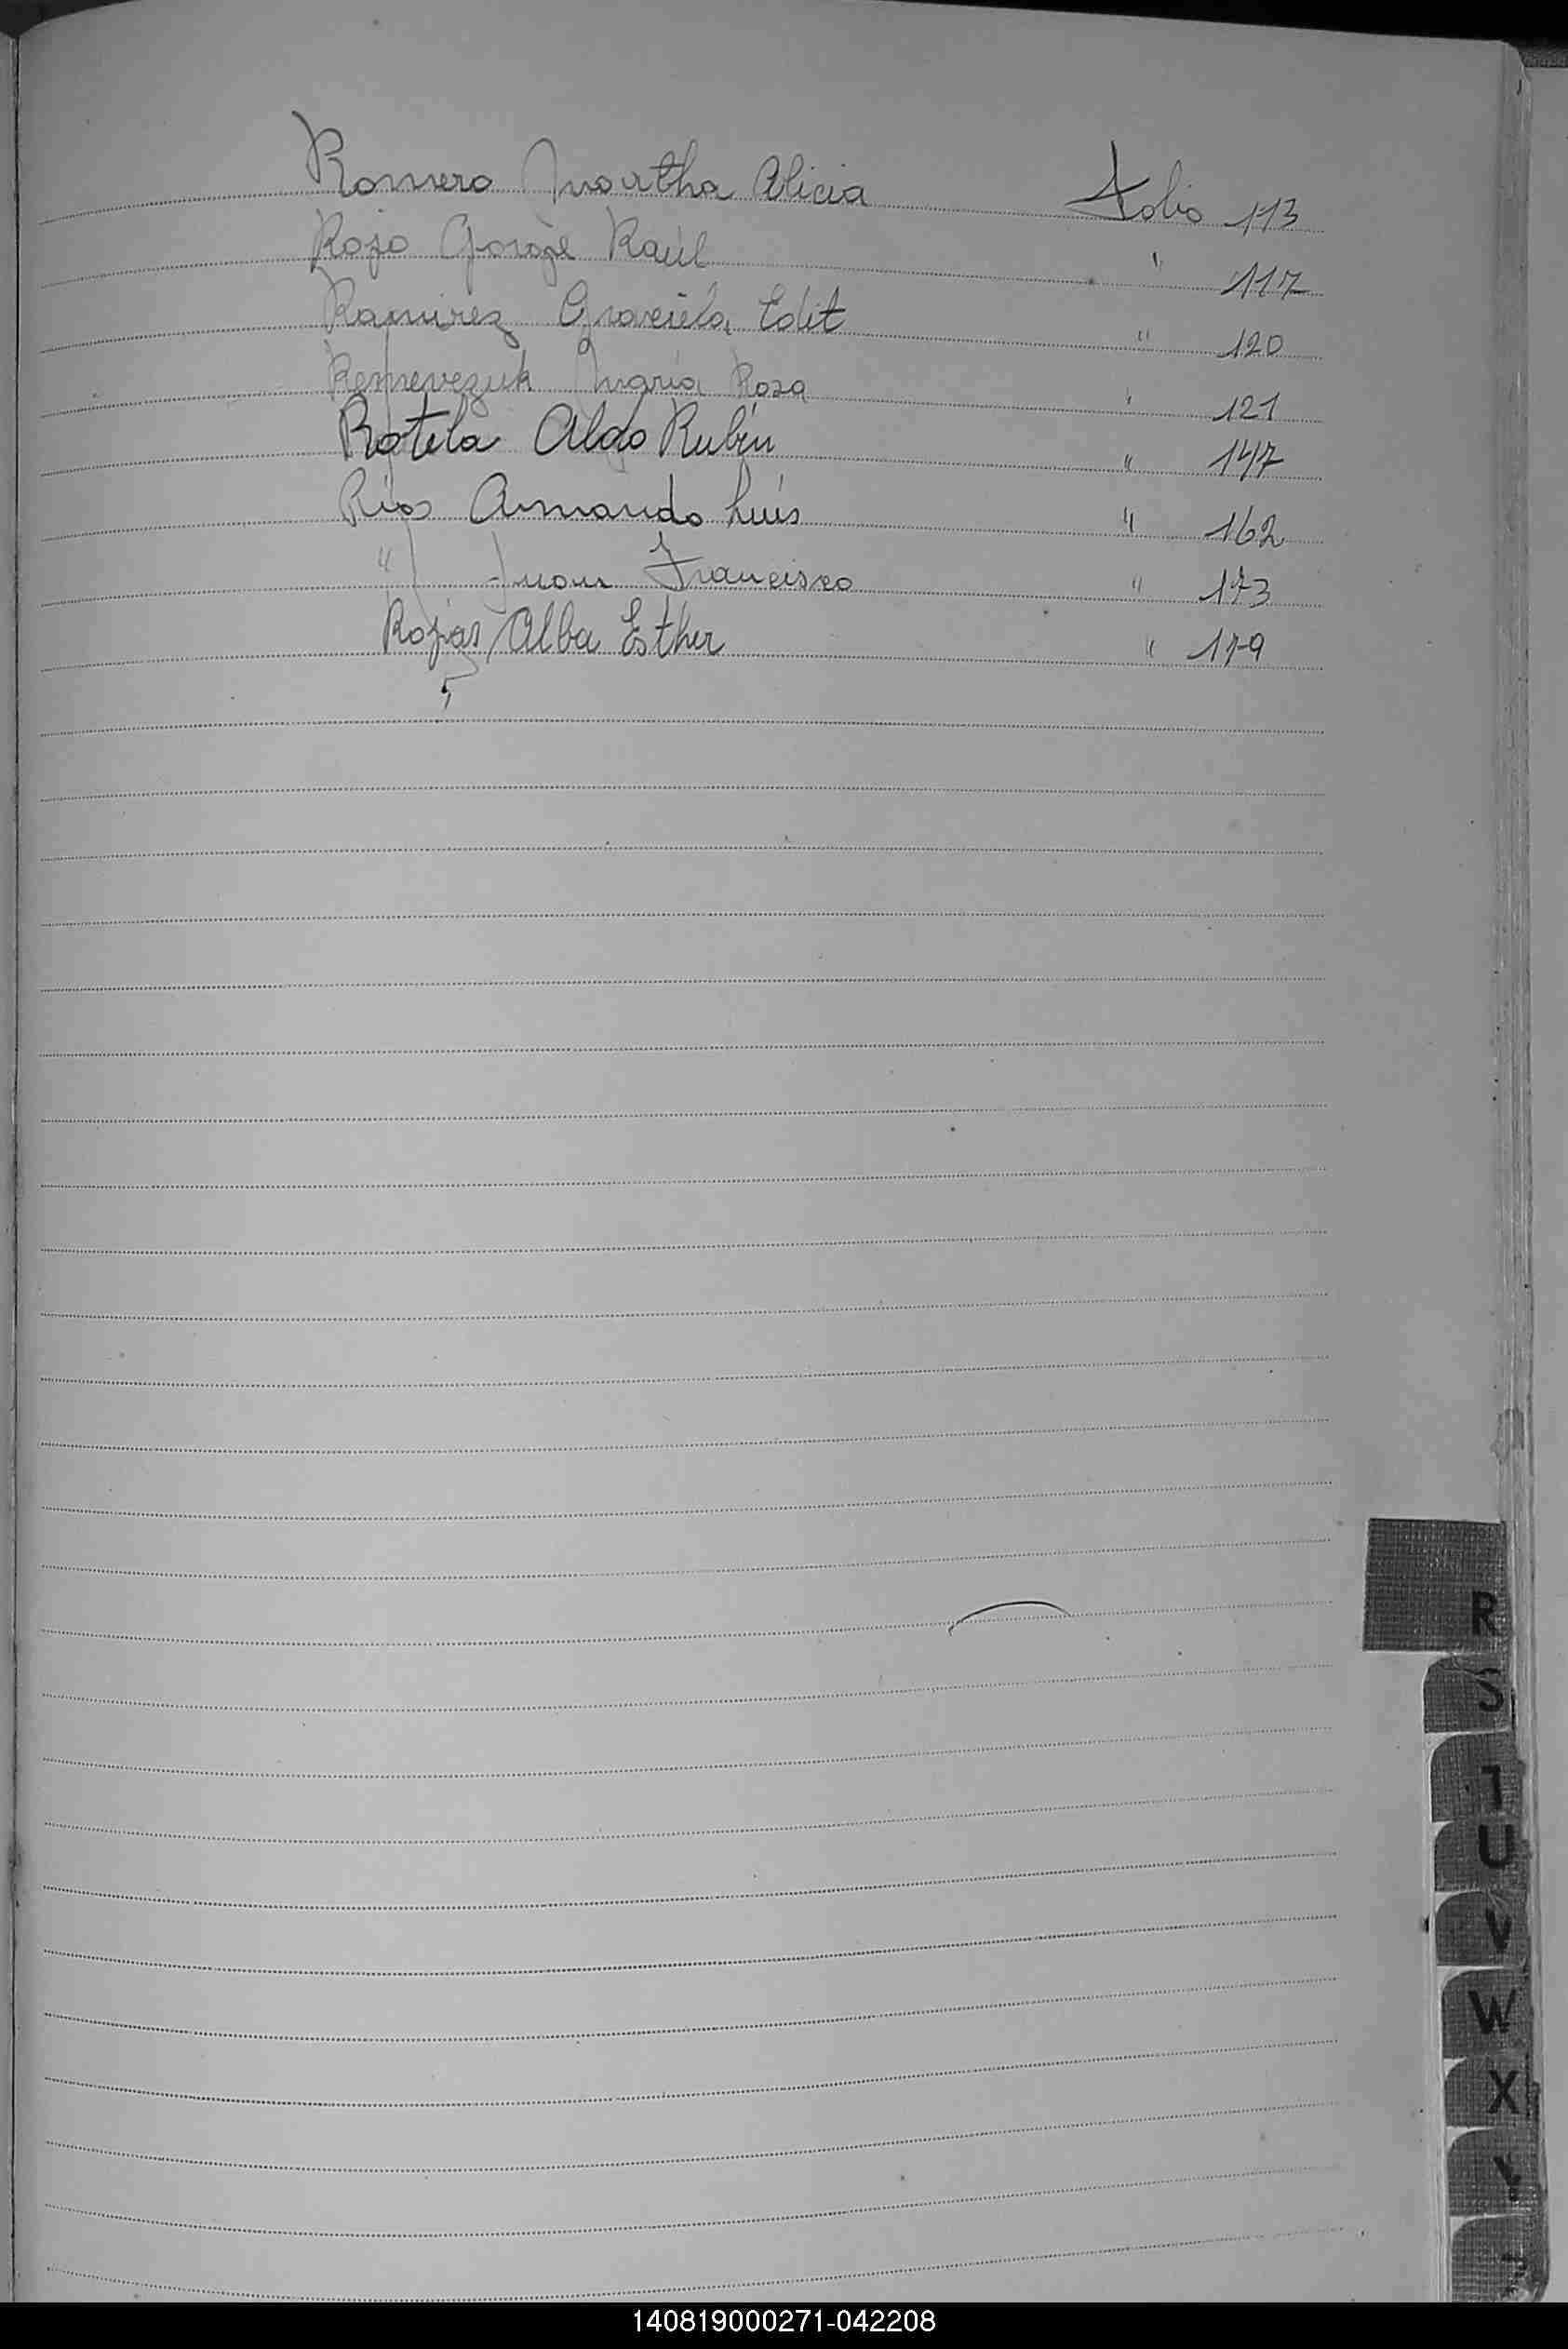 Romero Martha Alicia Folio 113
Rojo Jorge Raúl " 117
Ramirez Graciela Edit " 120
Remevezuk Maria Rosa " 121
Rotela Aldo Rubén " 147
Rios Armando Luis " 162
" Juan Francisco " 173
Rojas Alba Esther " 179
R
S
T
U
V
W
X
Y
140819000271-042208